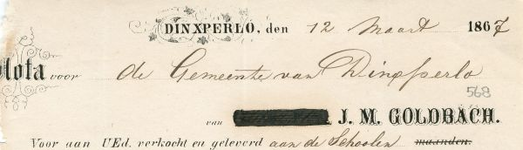 DINXPERLO, den 12 Maart 1867
Nota voor de Gemeente van Dinxperlo
568
van J. M. GOLDBACH.
Voor aan UEd. verkocht en geleverd aan de Schoolen maanden.